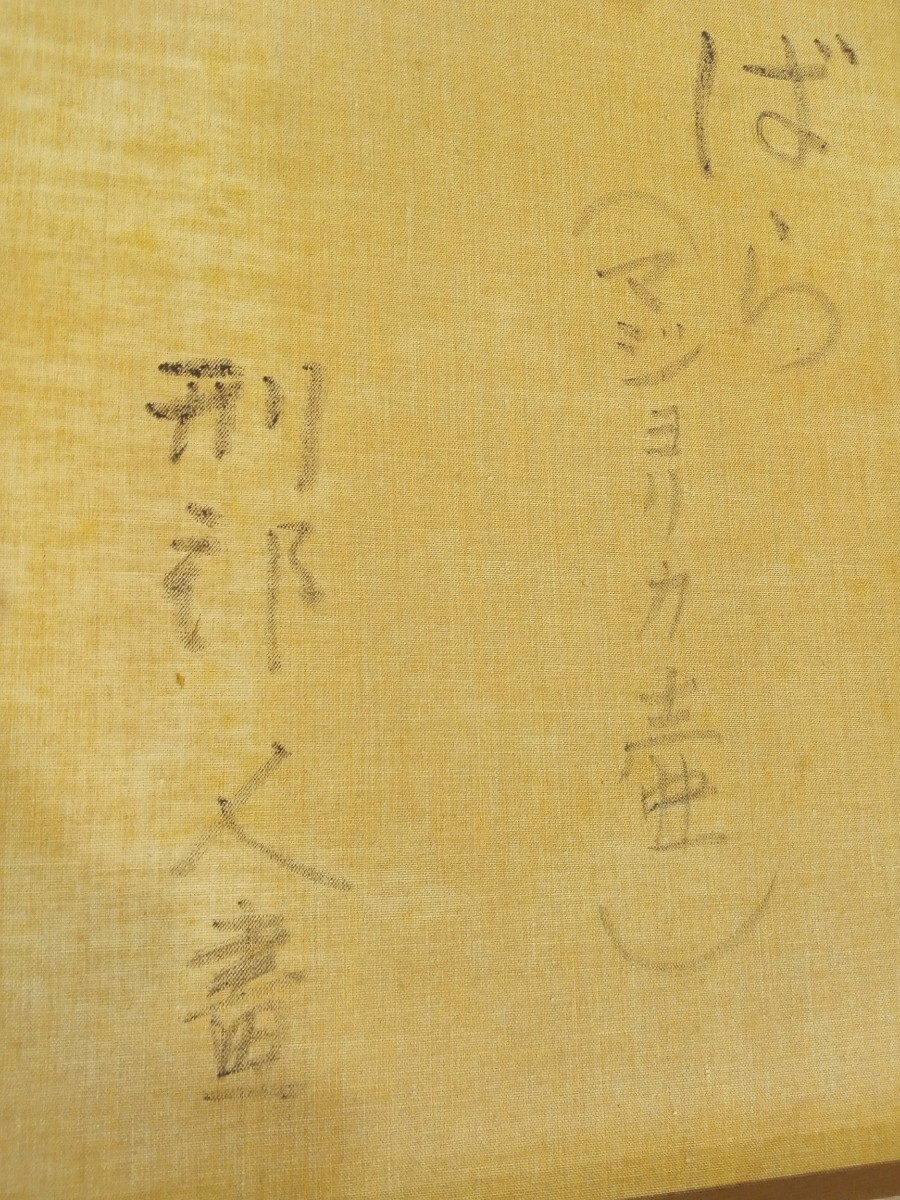 ばら
（マジヨリカ壷）
刑部人畫